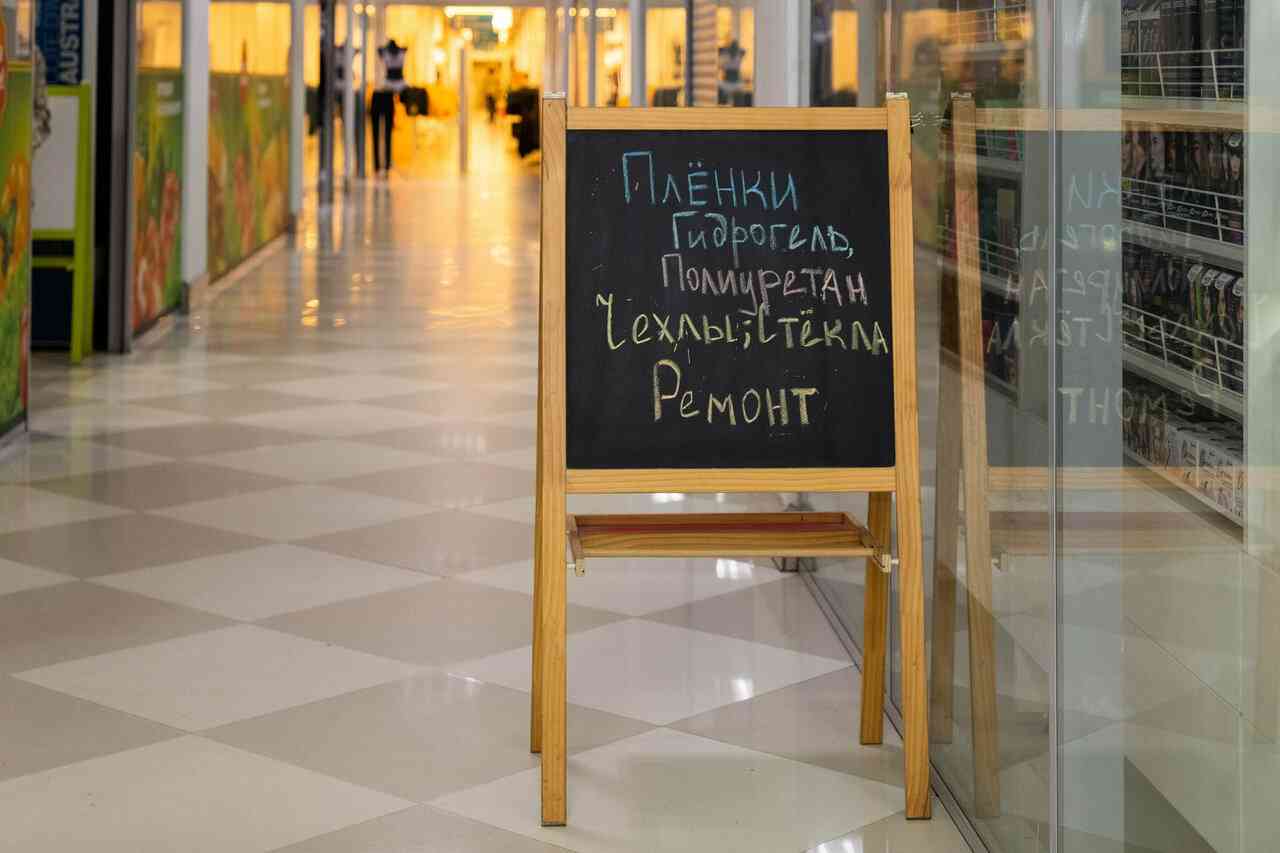 AUSTRA
Плёнки
Гидрогель,
Полиуретан
Чехлы; Стёкла
Ремонт